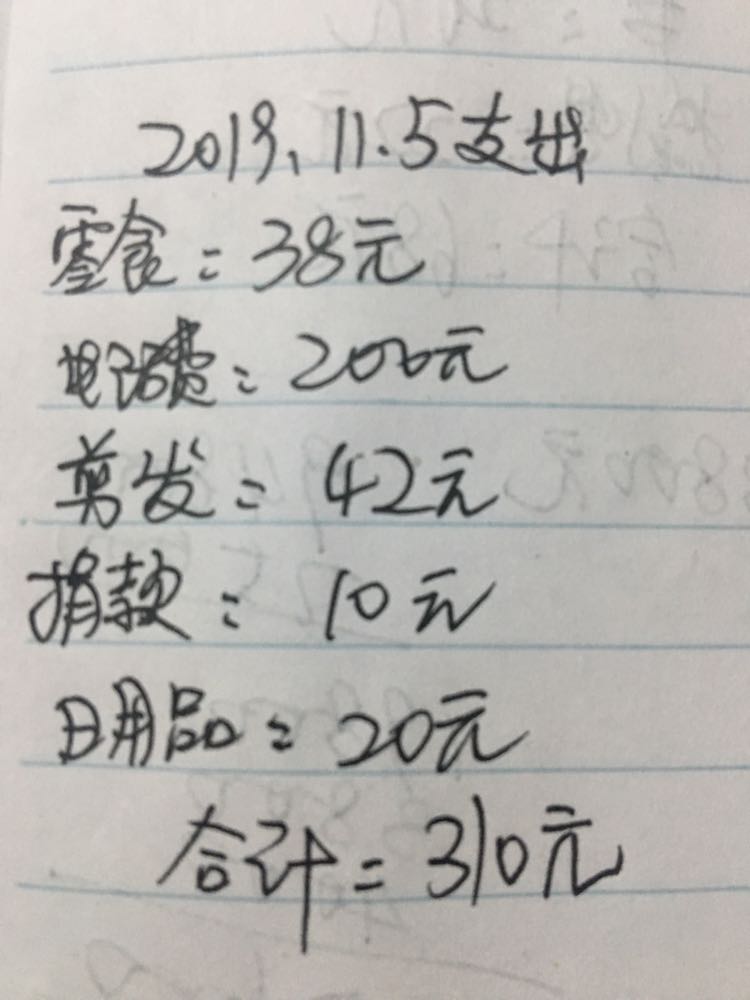 2019、11.5支出
零食：38元
电话费：200元
剪发：42元
捐款：10元
日用品：20元
合计=310元